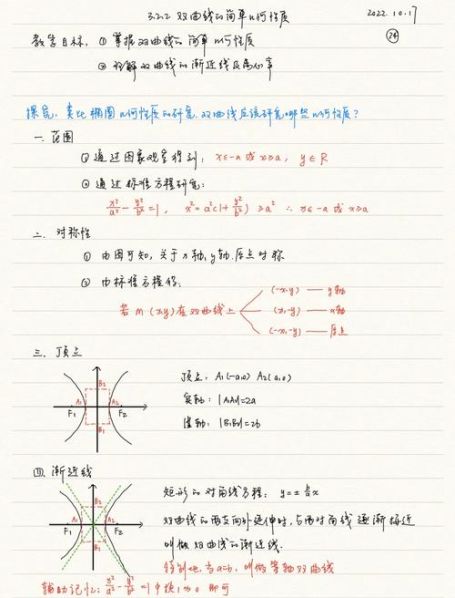 3.2.2 双曲线的简单几何性质 2022.10.17
教学目标：① 掌握双曲线的简单几何性质
② 理解双曲线的渐近线及离心率
探究：类比椭圆几何性质的研究，双曲线应该研究哪些几何性质？
一、范围
① 通过图象观察得到：x≤-a 或 x≥a，y∈R
② 通过标准方程研究：
x²/a² - y²/b² = 1，x² = a²(1+y²/b²) ≥a² ∴ x≤-a 或 x≥a
二、对称性
① 由图可知，关于x轴，y轴，原点对称
② 由标准方程得，
(-x,y) — y轴
若 M(x,y)在双曲线上 (x,-y) — x轴
(-x,-y) — 原点
三、顶点
顶点：A₁(-a,0) A₂(a,0)
B₂
A₁ A₂ 实轴：|A₁A₂|=2a
F₁ F₂
B₁ 虚轴：|B₁B₂|=2b
四、渐近线
矩形的对角线方程：y=±b/a x
B₂
A₁ A₂ 双曲线的两支向外延伸时，与两对角线逐渐接近
F₁ F₂
B₁ 叫做双曲线的渐近线.
特别地，当a=b，叫做等轴双曲线
辅助记忆：x²/a² - y²/b² = 1中换1为0 即可